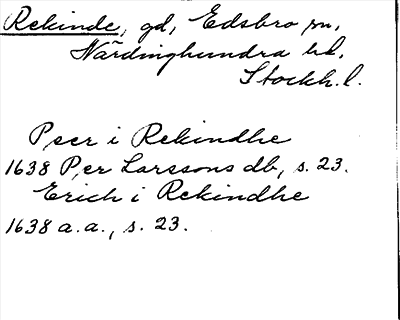 Rekinde, gd, Edsbro sn,
Närdinghundra hd,
Stockh. l.
Peer i Rekindhe
1638 Per Larssons db, s. 23.
Erich i Rekindhe
1638 a.a., s. 23.